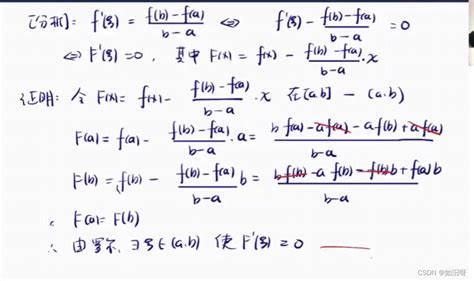 [分析]: f'(ξ) = \frac{f(b)-f(a)}{b-a} ⇔ f'(ξ) - \frac{f(b)-f(a)}{b-a} = 0
⇔ F'(ξ) = 0, 其中 F(x) = f(x) - \frac{f(b)-f(a)}{b-a}·x
证明: 令 F(x) = f(x) - \frac{f(b)-f(a)}{b-a}·x 在[a.b] - (a.b)
F(a) = f(a) - \frac{f(b)-f(a)}{b-a}·a = \frac{bf(a)-af(a)-af(b)+af(a)}{b-a}
F(b) = f(b) - \frac{f(b)-f(a)}{b-a}b = \frac{bf(b)-af(b)-f(b)b+f(a)b}{b-a}
F(a) = F(b)
∴ 由罗尔, ∃ξ∈(a.b) 使 F'(ξ) = 0
CSDN @如旧呀